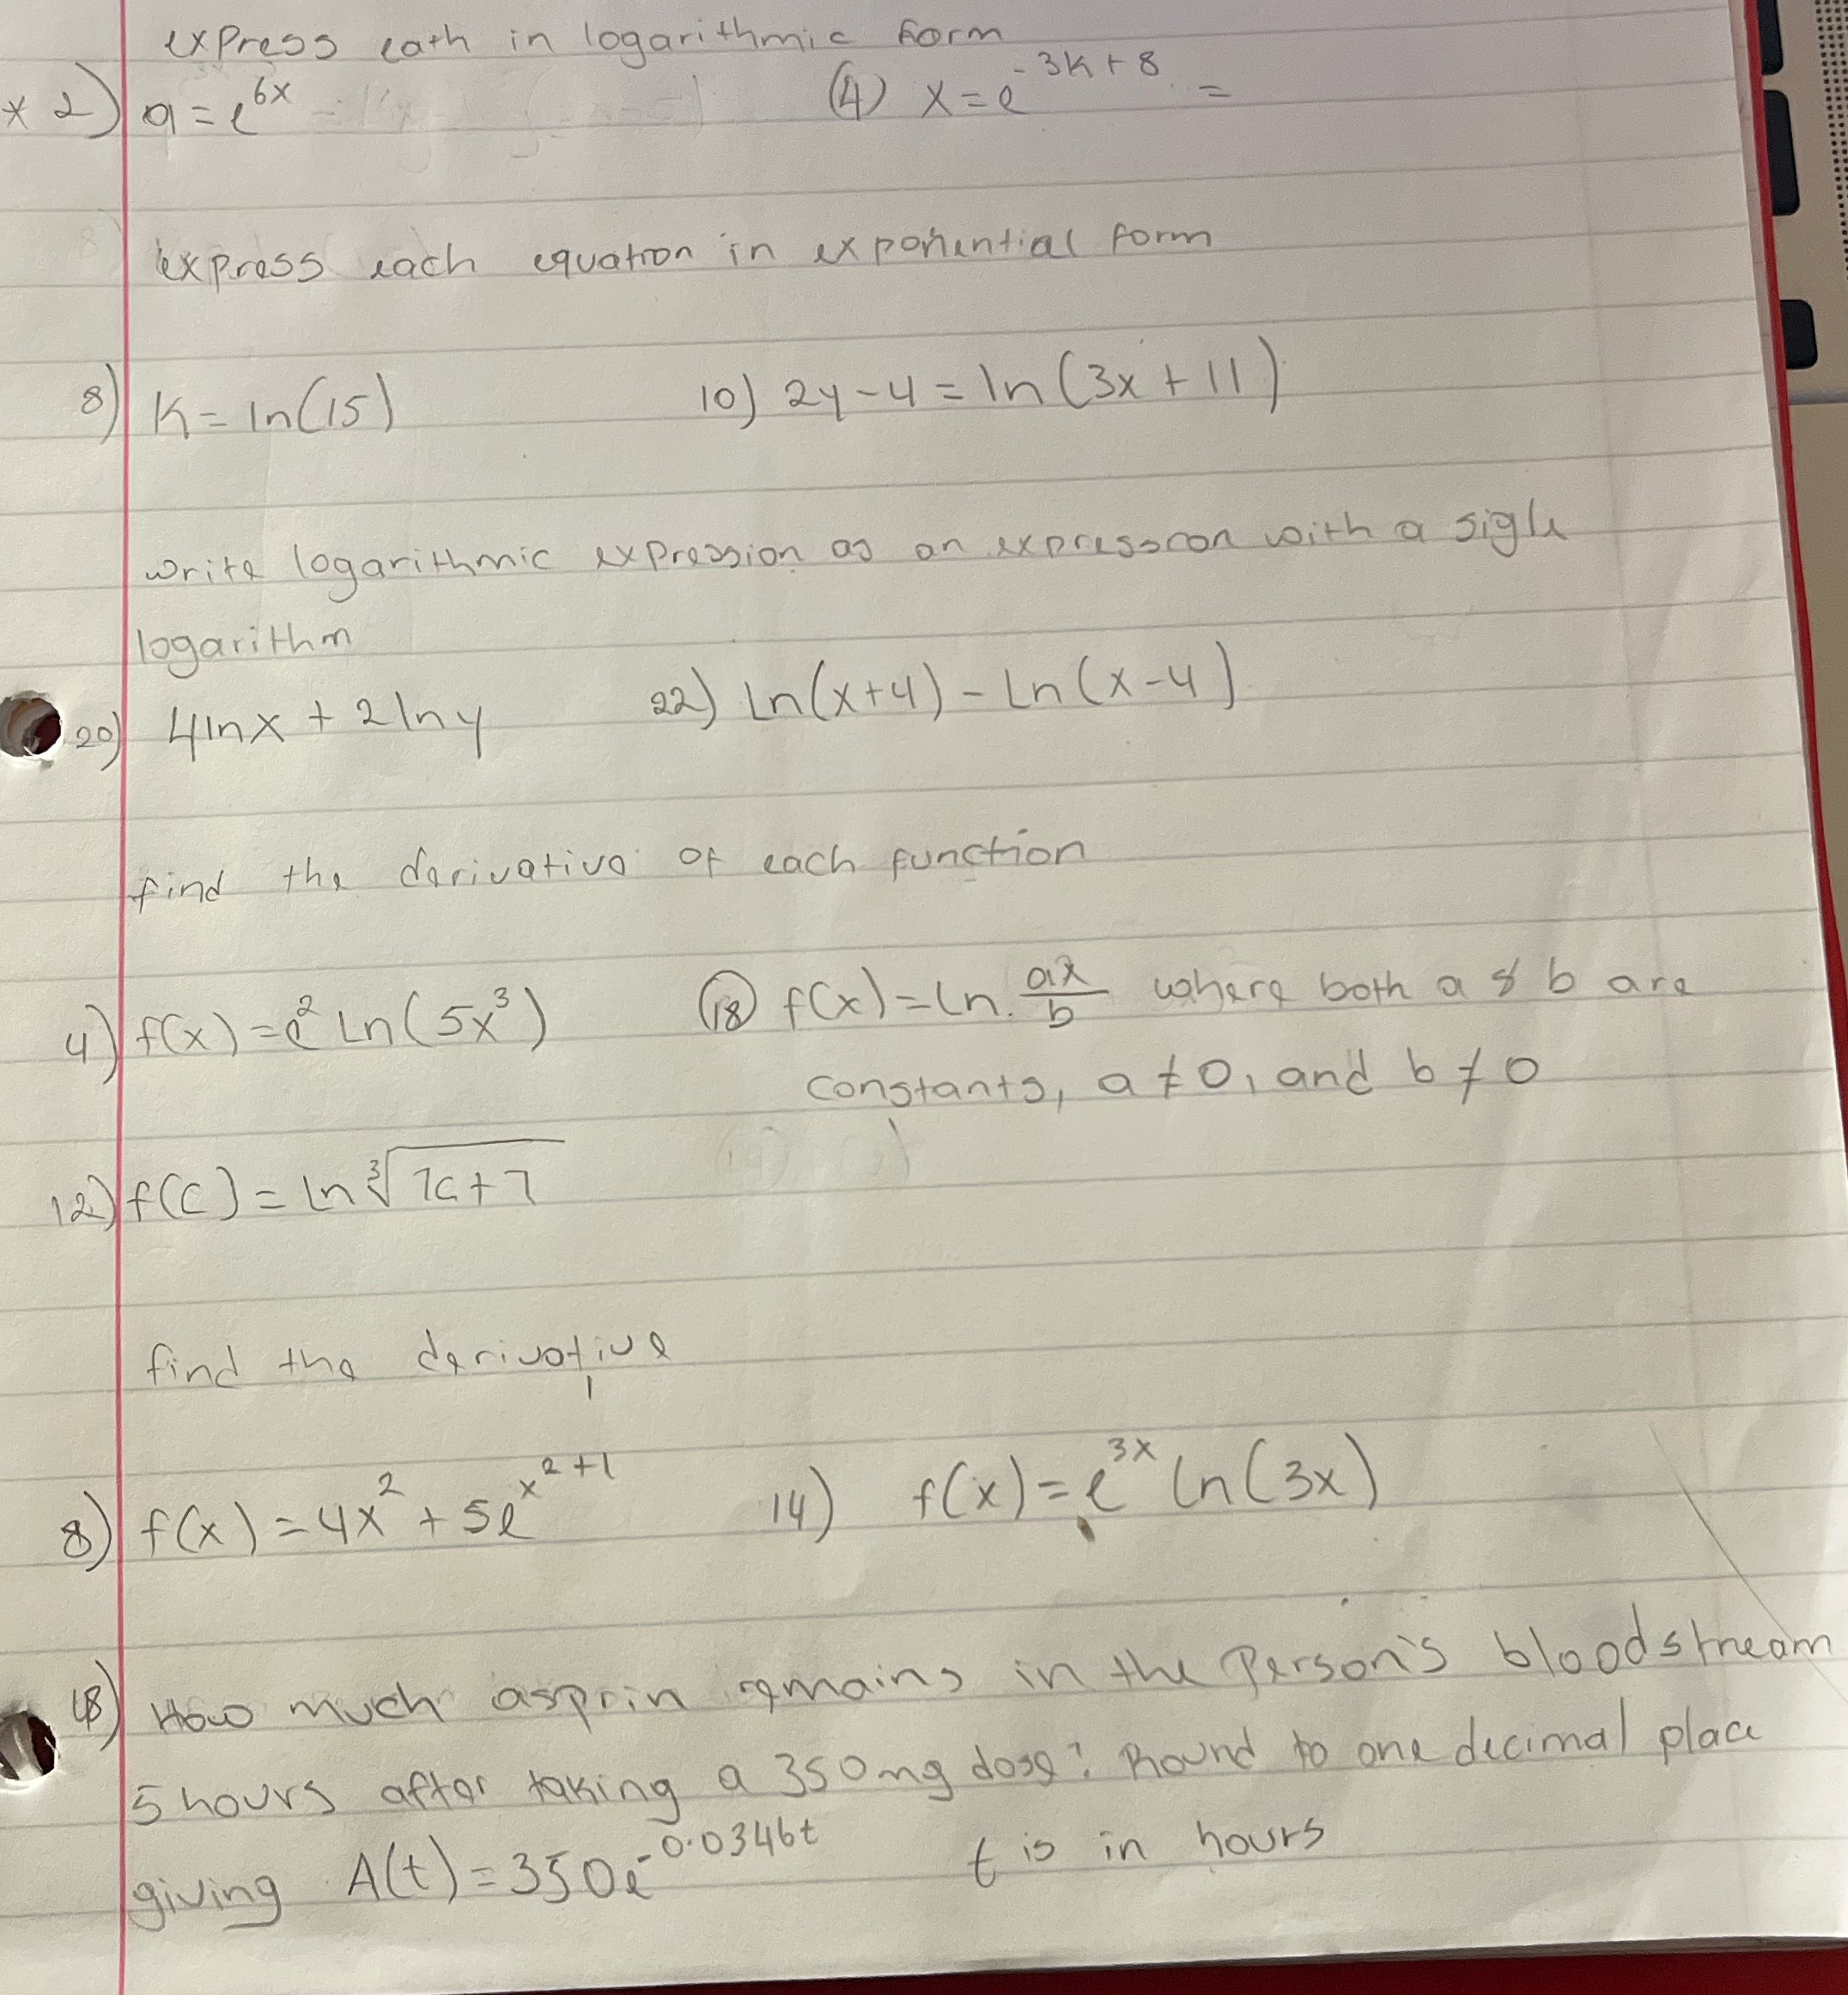 express eath in logarithmic form
* 2) a = e^6x (4) x = e^-3k+8 =
express each equation in exponential form
8) K = ln(15) 10) 2y-4 = ln(3x+11)
write logarithmic expression as an expression with a sigle
logarithm
20) 4lnx + 2lny 22) Ln(x+4) - Ln(x-4)
find the derivative of each function
4) f(x) = e^2 Ln(5x^3) (18) f(x) = Ln ax/b where both a & b are
constants, a ≠ 0, and b ≠ 0
12) f(c) = ln ∛7c+7
find the derivative
8) f(x) = 4x^2 + 5e^x^2+1 14) f(x) = e^3x ln(3x)
18) How much asprin remains in the Person's bloodstream
5 hours after taking a 350mg dose? Round to one decimal place
giving A(t) = 350e^-0.0346t t is in hours